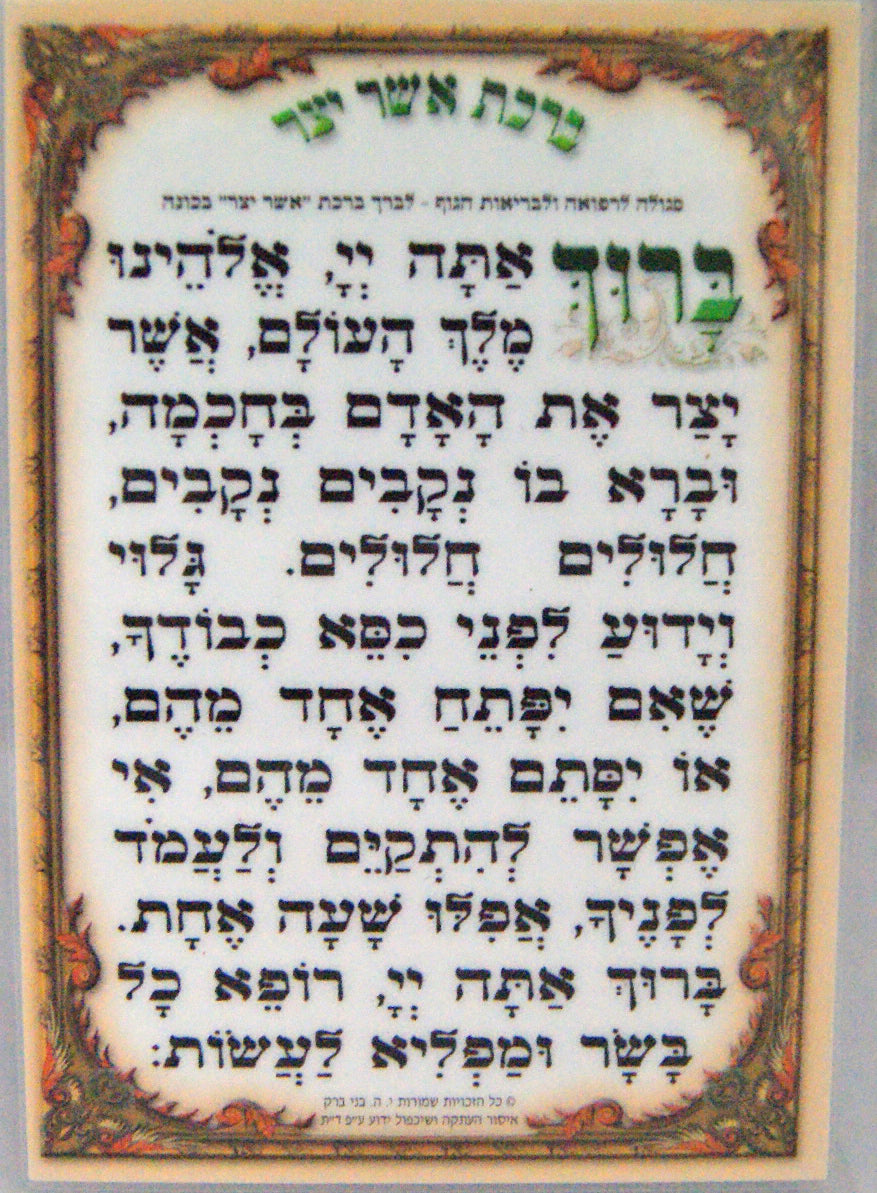 ברכת אשר יצר
סגולה לרפואה ולבריאות הגוף - לברך ברכת "אשר יצר" בכונה
בָּרוּךְ אַתָּה יְיָ, אֱלֹהֵינוּ
מֶלֶךְ הָעוֹלָם, אֲשֶׁר
יָצַר אֶת הָאָדָם בְּחָכְמָה,
וּבָרָא בוֹ נְקָבִים נְקָבִים,
חֲלוּלִים חֲלוּלִים. גָּלוּי
וְיָדוּעַ לִפְנֵי כִסֵּא כְבוֹדֶךָ,
שֶׁאִם יִפָּתֵחַ אֶחָד מֵהֶם,
אוֹ יִסָּתֵם אֶחָד מֵהֶם, אִי
אֶפְשָׁר לְהִתְקַיֵּם וְלַעֲמֹד
לְפָנֶיךָ, אֲפִלּוּ שָׁעָה אֶחָת.
בָּרוּךְ אַתָּה יְיָ, רוֹפֵא כָל
בָּשָׂר וּמַפְלִיא לַעֲשׂוֹת:
© כל הזכויות שמורות י. ה. בני ברק
איסור העתקה ושיכפול ידוע ע"פ ד"ת